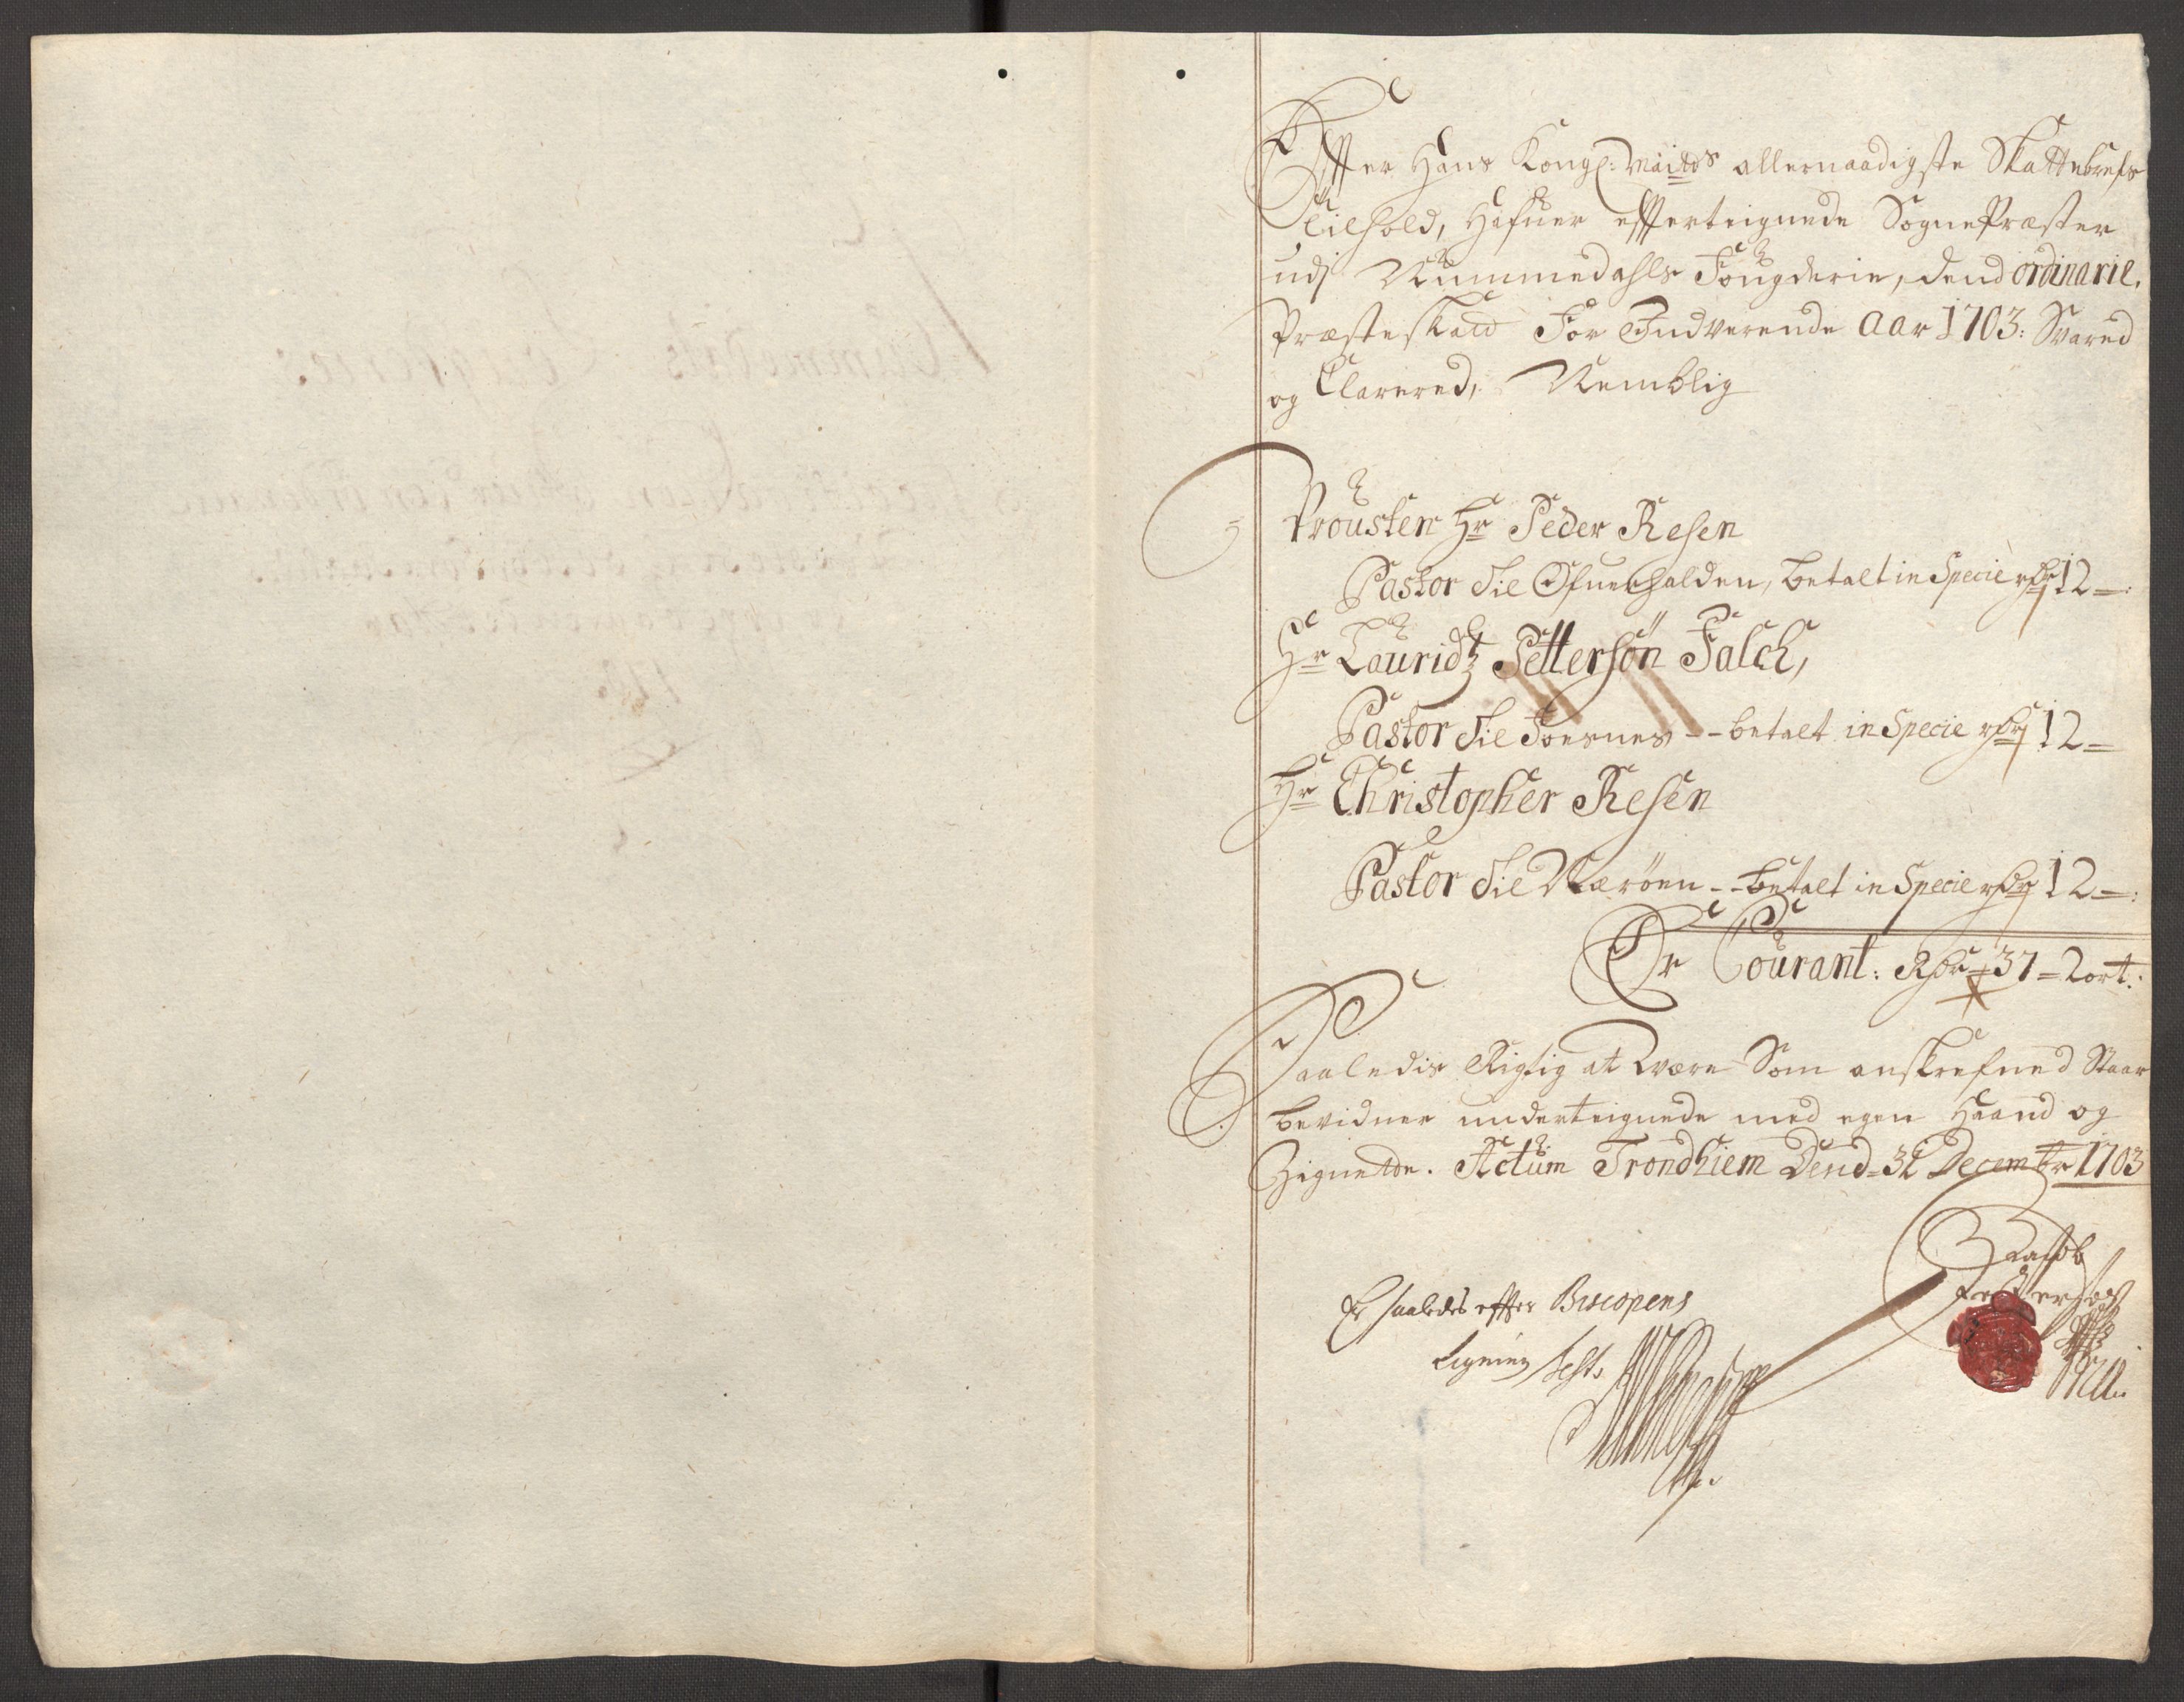 Effter Hans Kongl: Maits allernaadigste Skattebrefs
tilhold, Hafuer effterteignede SognePræster
udj Nummedahls Fougderie, dend ordinarie.
Præsteskatt For Indverende Aar 1703: Svared
og Clarered, Nemblig
Prousten Hr Peder Resen
Pastor til Ofuerhalden, betalt in Specie rdr 12 –:
Hr Lauridtz Pettersøn Falch,
Pastor til Foesnes -- betalt in Specie rdr 12 –
Hr Christopher Resen
Pastor til Nærøen -- betalt in Specie rdr 12 –:
Er Courant: Rdr 37 – 2 ort:
Saaledis Rigtig at Være Som anskrefued Staar
bevidner underteignede med egen Haand og
Zignette. Actum Trondhiem Dend 31 Decembr 1703
Er saaledes effter Biscopens
Ligning